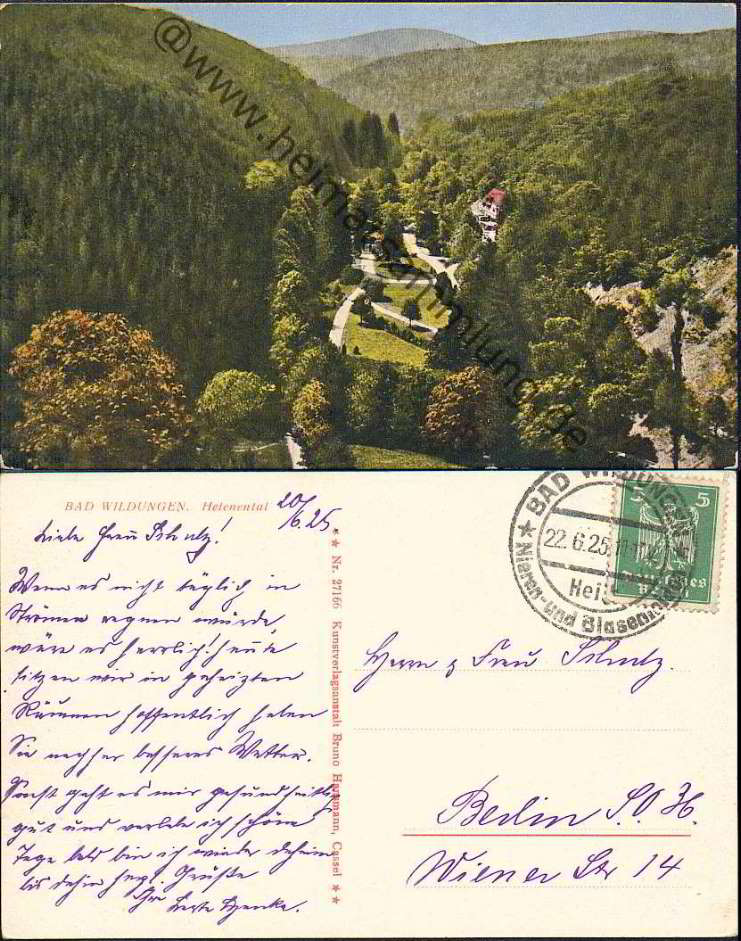 @www.heimat-sammlung.de
BAD WILDUNGEN. Helenental
20/6.25
Liebe Frau Schulz!
Wenn es nicht täglich in
Strömen regnen würde,
wäre es herrlich! Heute
sitzen wir in geheizten
Räumen hoffentlich haben
Sie nachher besseres Wetter.
Sonst geht es mir gesundheitlich
gut und verlebe ich schöne
Tage bald bin ich wieder daheim
bis dahin herzl. Grüße
Ihr
★★ Nr. 27166 Kunstverlagsanstalt Bruno Hansmann, Cassel ★★
BAD WILDUNGEN
22.6.25
Heil
Nieren- und Blasen
5 5
Deutsches
Reich
Herrn & Frau Schulz.
Berlin S.O. 36.
Wiener Str 14